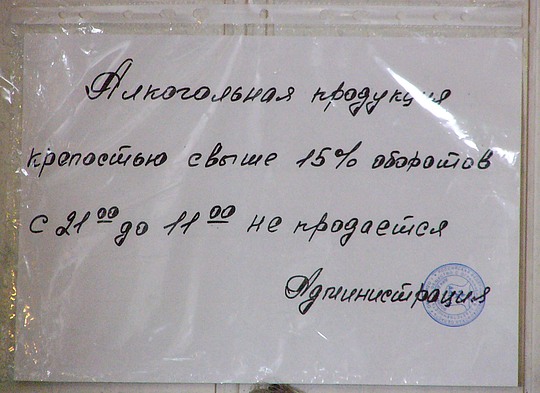 Алкогольная продукция
крепостью свыше 15% оборотов
с 21⁰⁰ до 11⁰⁰ не продается
Администрация